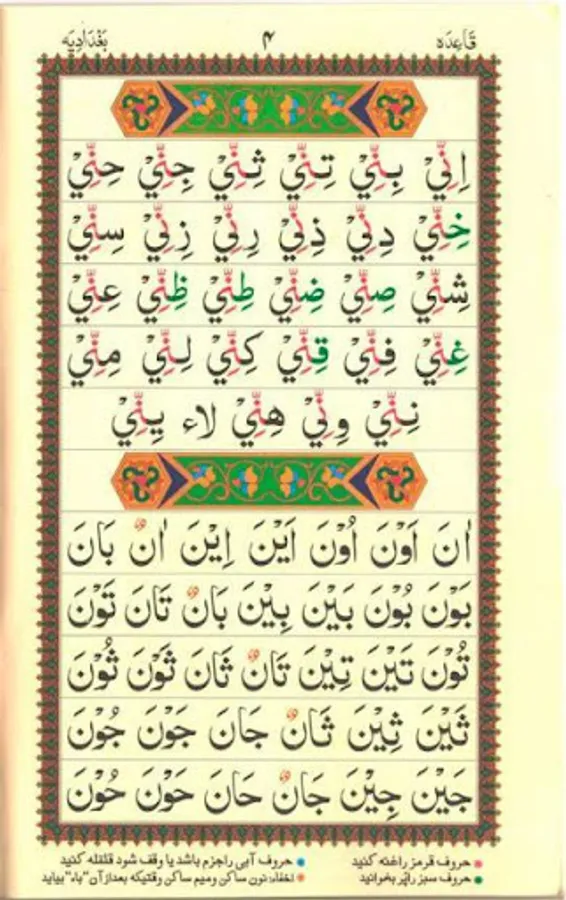 قاعده ۴ بغدادیه
اِنِّيْ بِنِّيْ تِنِّيْ ثِنِّيْ جِنِّيْ حِنِّيْ
خِنِّيْ دِنِّيْ ذِنِّيْ رِنِّيْ زِنِّيْ سِنِّيْ
شِنِّيْ صِنِّيْ ضِنِّيْ طِنِّيْ ظِنِّيْ عِنِّيْ
غِنِّيْ فِنِّيْ قِنِّيْ كِنِّيْ لِنِّيْ مِنِّيْ
نِنِّيْ وِنِّيْ هِنِّيْ لاء يِنِّيْ
اٰنَ اَوْنَ اُوْنَ اَيْنَ اِيْنَ اٰنٌ بَانَ
بَوْنَ بُوْنَ بَيْنَ بِيْنَ بَانٌ تَانَ تَوْنَ
تُوْنَ تَيْنَ تِيْنَ تَانٌ ثَانَ ثَوْنَ ثُوْنَ
ثَيْنَ ثِيْنَ ثَانٌ جَانَ جَوْنَ جُوْنَ
جَيْنَ جِيْنَ جَانٌ حَانَ حَوْنَ حُوْنَ
حروف قرمز راغنه کنید حروف آبی راجزم باشد یا وقف شود قلقله کنید
حروف سبز راپر بخوانید اخفاء: نون ساکن ومیم ساکن وقتیکه بعدازآن "باء" بیاید